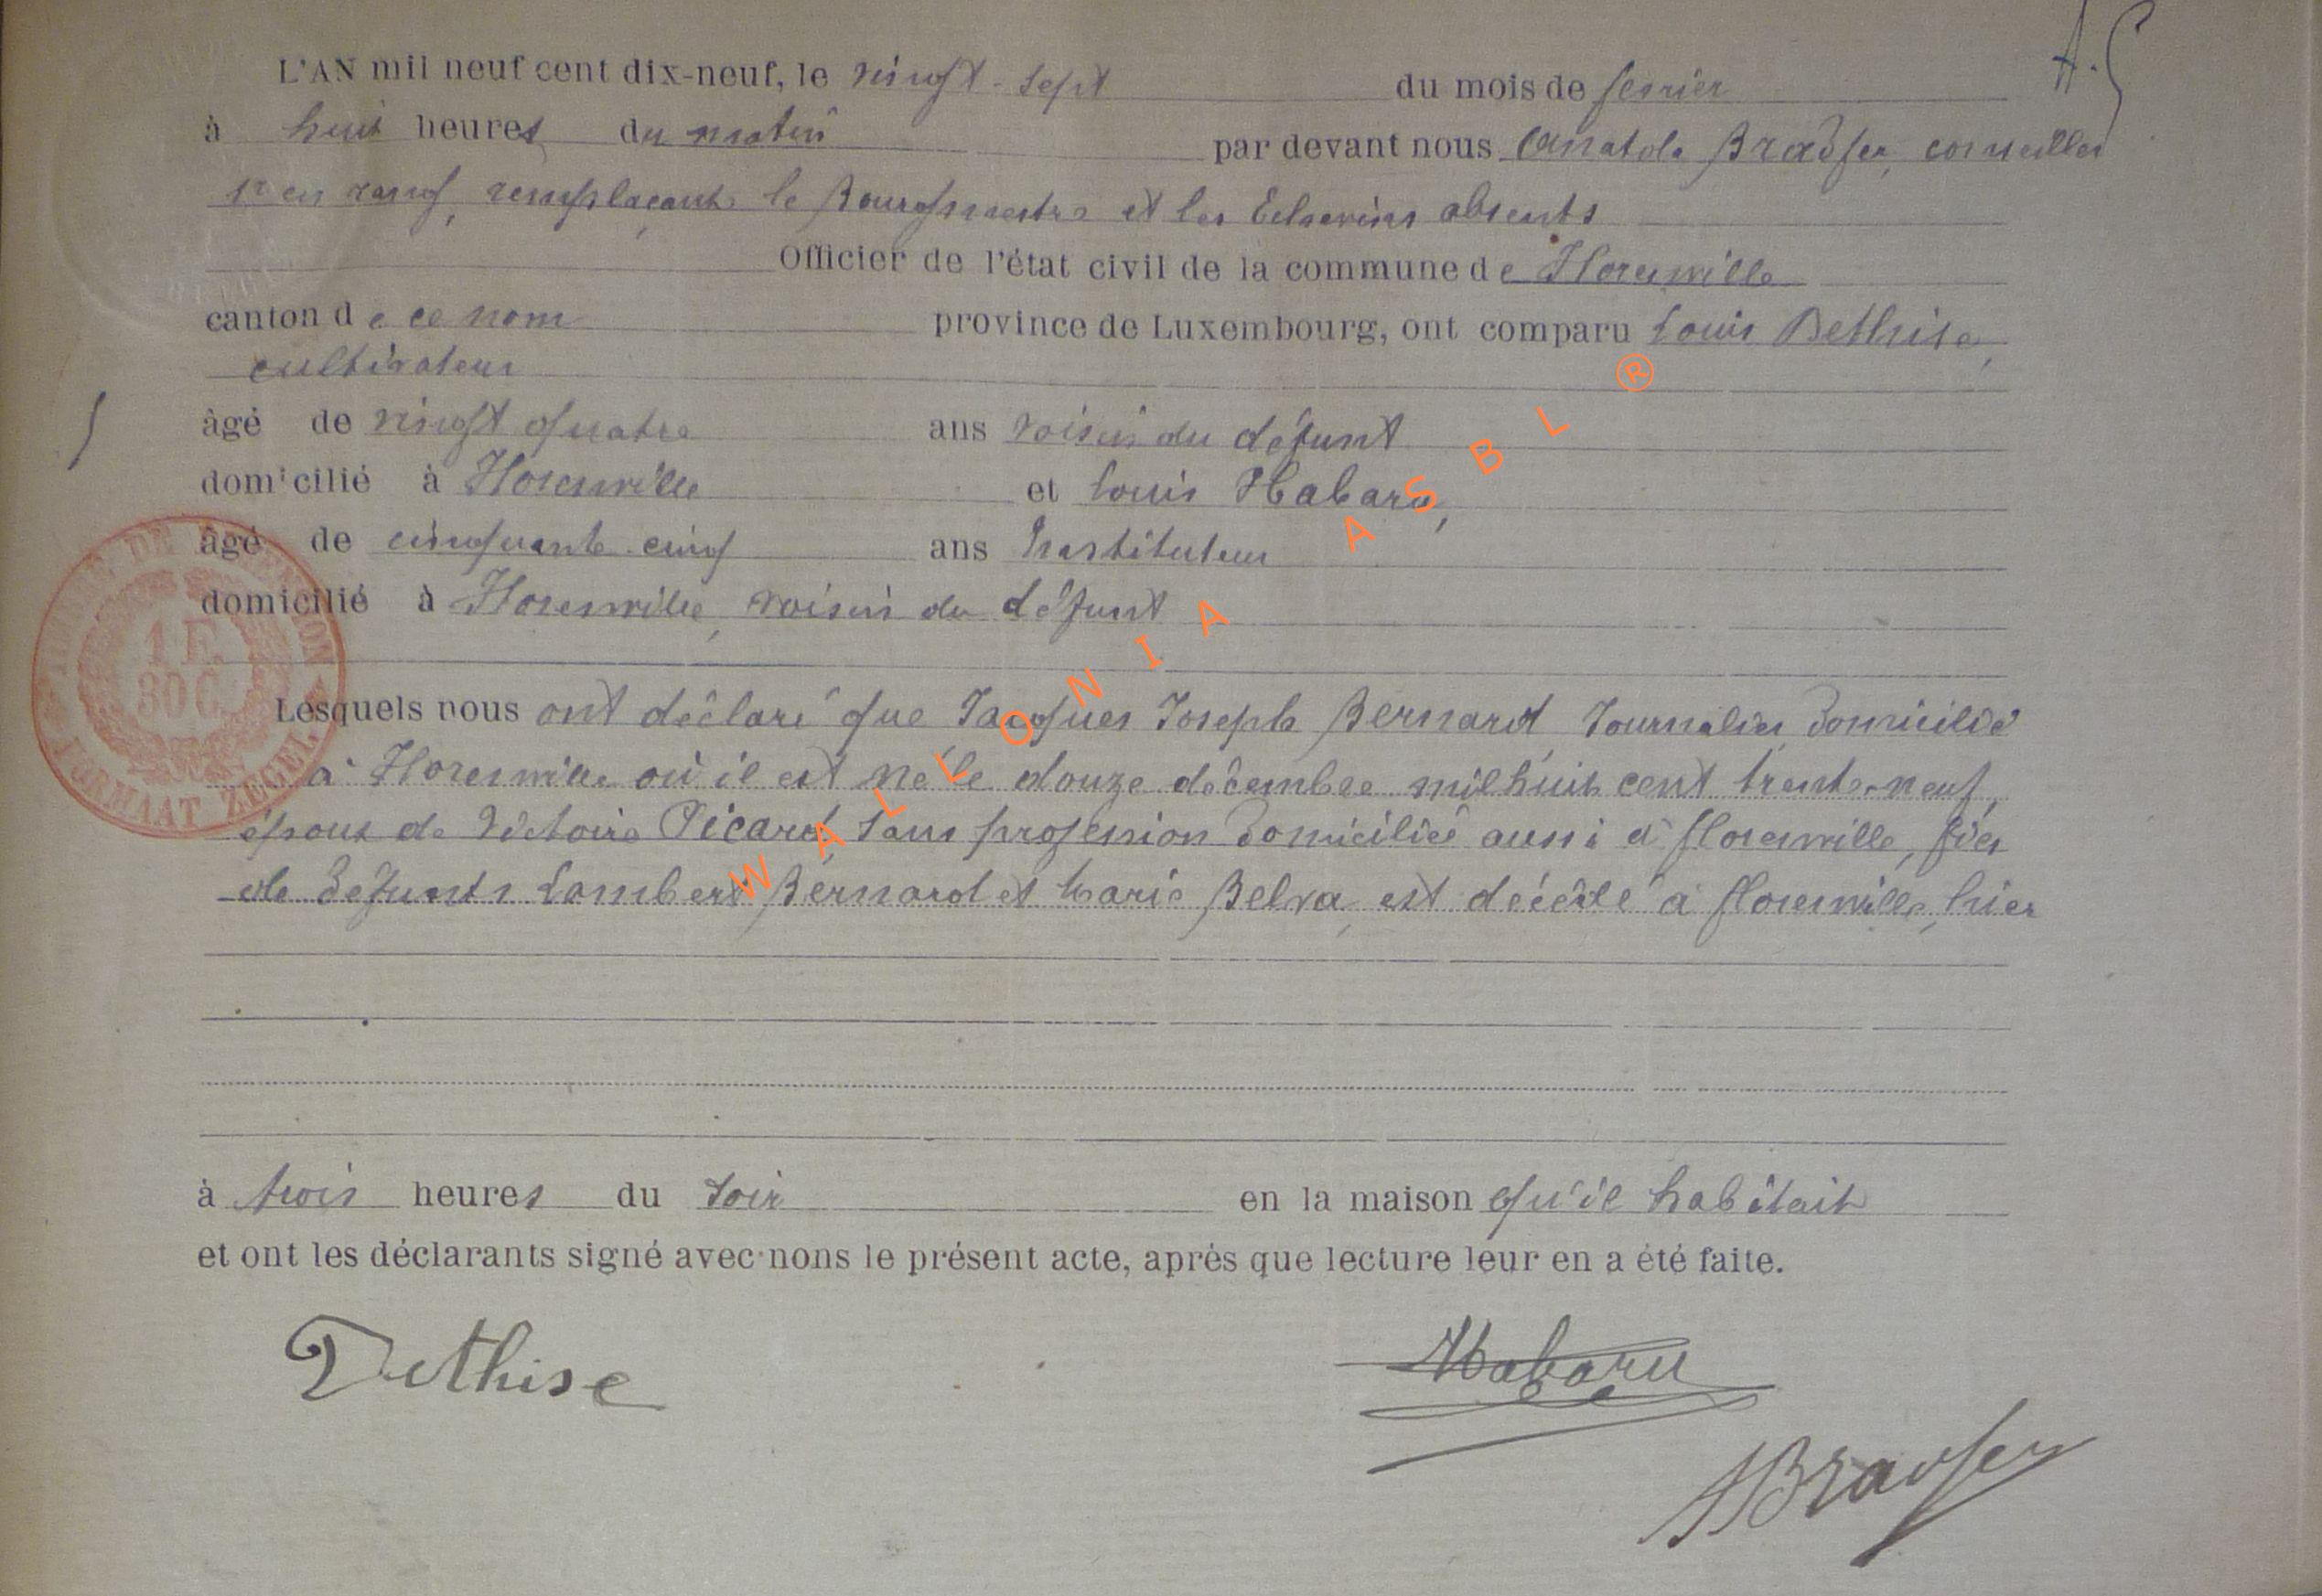 A.S
L'AN mil neuf cent dix-neuf, le vingt-sept du mois de fevrier
à huit heures du matin par devant nous Anatole conseiller
1er en rang, remplaçant le Bourgmestre et les Echevins absents
Officier de l'état civil de la commune de Florenville
canton de ce nom province de Luxembourg, ont comparu Louis Dethise,
cultivateur
âgé de vingt quatre ans voisin du défunt
domicilié à Florenville et Louis Habaru,
âgé de cinquante cinq ans Instituteur
domicilié à Florenville, voisin du défunt
Lesquels nous ont déclaré que Jacques Joseph Bernard, Journalier, domicilié
à Florenville où il est né le douze décembre mil huit cent trente-neuf,
époux de Victoire Picard, sans profession domiciliée aussi à florenville, fils
de défunts Lambert Bernard et Marie Belva, est décédé à florenville, hier
à trois heures du soir en la maison qu'il habitait
et ont les déclarants signé avec nons le présent acte, après que lecture leur en a été faite.
Dethise Habaru
TIMBRE DE DIMENSION
1 F.
30 C.
FORMAAT ZEGEL
WALLONIA ASBL ®